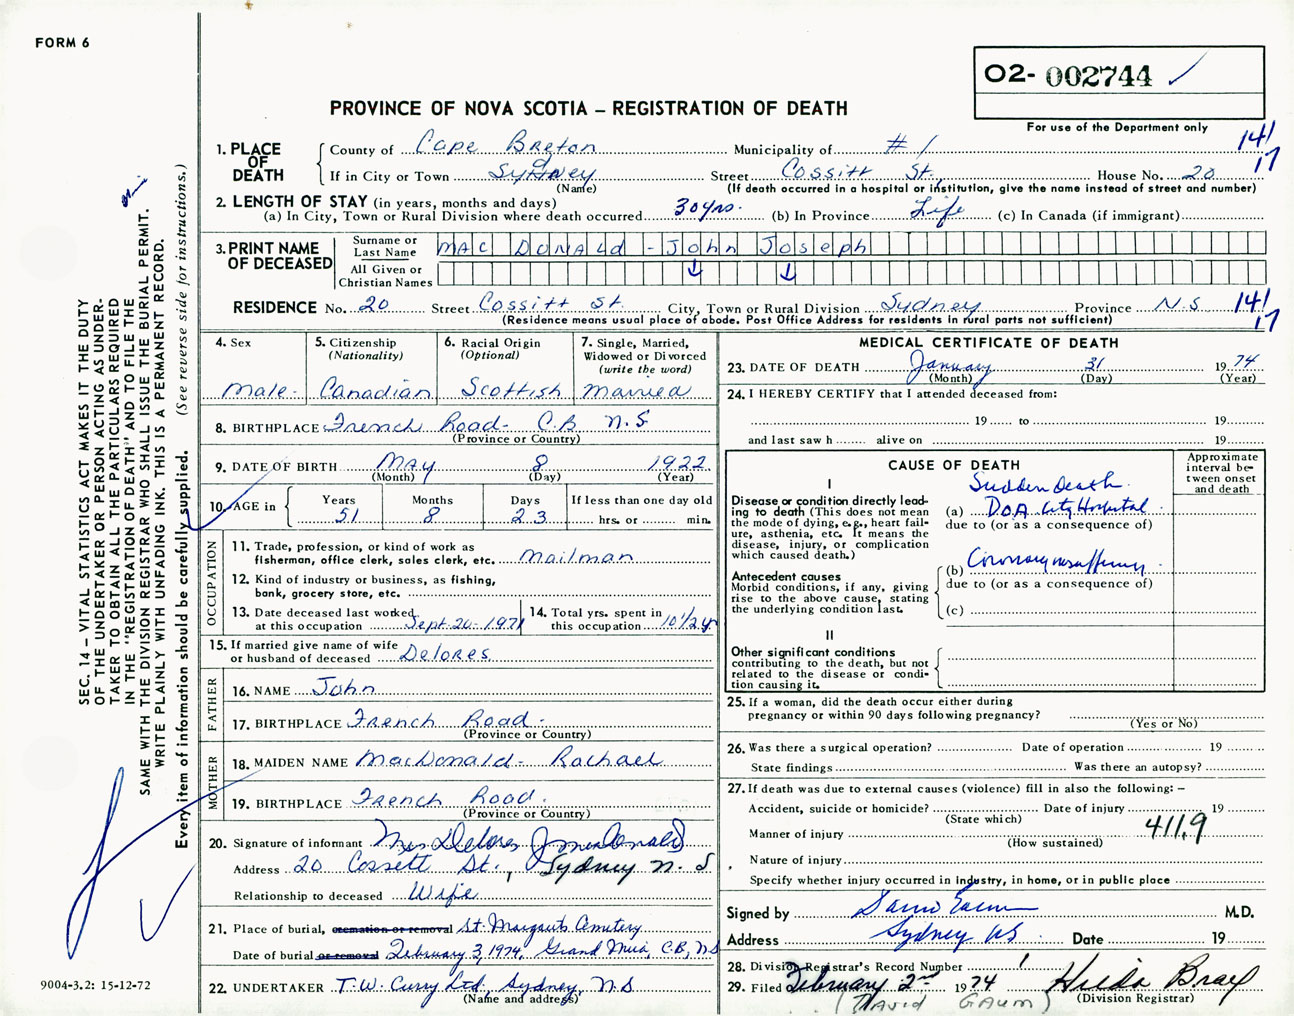 FORM 6
O2- 002744 ✓
PROVINCE OF NOVA SCOTIA – REGISTRATION OF DEATH
For use of the Department only
1. PLACE OF DEATH
County of Cape Breton Municipality of #1 141
If in City or Town Sydney Street Cossitt St. House No. 20 17
(Name) (If death occurred in a hospital or institution, give the name instead of street and number)
2. LENGTH OF STAY (in years, months and days)
(a) In City, Town or Rural Division where death occurred 30 yrs. (b) In Province Life (c) In Canada (if immigrant)
3. PRINT NAME OF DECEASED
Surname or Last Name MAC DONALd - John Joseph
All Given or Christian Names ↓ ↓
RESIDENCE No. 20 Street Cossitt St. City, Town or Rural Division Sydney Province N.S 141
(Residence means usual place of abode. Post Office Address for residents in rural parts not sufficient) 17
4. Sex
Male
5. Citizenship
(Nationality)
Canadian
6. Racial Origin
(Optional)
Scottish
7. Single, Married,
Widowed or Divorced
(write the word)
Married
8. BIRTHPLACE French Road - C.B N.S
(Province or Country)
9. DATE OF BIRTH May 8 1922
(Month) (Day) (Year)
10. AGE in
Years Months Days If less than one day old
51 8 23 hrs. or min.
OCCUPATION
11. Trade, profession, or kind of work as
fisherman, office clerk, sales clerk, etc. Mailman
12. Kind of industry or business, as fishing,
bank, grocery store, etc.
13. Date deceased last worked
at this occupation Sept 20 - 1971
14. Total yrs. spent in
this occupation 10 1/2 yr
15. If married give name of wife
or husband of deceased Delores
FATHER
16. NAME John
17. BIRTHPLACE French Road -
(Province or Country)
MOTHER
18. MAIDEN NAME MacDonald - Rachael
19. BIRTHPLACE French Road.
(Province or Country)
20. Signature of informant Mrs Delores
Address 20 Cossett St., Sydney N.S
Relationship to deceased Wife
21. Place of burial, cremation or removal St. Margarets Cemetery
Date of burial or removal February 3, 1974, Grand Mira, C.B, NS
22. UNDERTAKER T.W. Curry Ltd, Sydney, N.S
(Name and address)
MEDICAL CERTIFICATE OF DEATH
23. DATE OF DEATH January 31 1974
(Month) (Day) (Year)
24. I HEREBY CERTIFY that I attended deceased from:
19 to 19
and last saw h alive on 19
CAUSE OF DEATH
Approximate
interval be-
tween onset
and death
I
Disease or condition directly lead-
ing to death (This does not mean
the mode of dying, e.g., heart fail-
ure, asthenia, etc. It means the
disease, injury, or complication
which caused death.)
Sudden Death.
(a) D.O.A City Hospital
due to (or as a consequence of)
Antecedent causes
Morbid conditions, if any, giving
rise to the above cause, stating
the underlying condition last.
(b) Coronary insufficiency
due to (or as a consequence of)
(c)
II
Other significant conditions
contributing to the death, but not
related to the disease or condi-
tion causing it.
25. If a woman, did the death occur either during
pregnancy or within 90 days following pregnancy?
(Yes or No)
26. Was there a surgical operation? Date of operation 19
State findings Was there an autopsy?
27. If death was due to external causes (violence) fill in also the following: –
Accident, suicide or homicide? Date of injury 19
(State which)
Manner of injury 411.9
(How sustained)
Nature of injury
Specify whether injury occurred in industry, in home, or in public place
Signed by M.D.
Address Sydney NS Date 19
28. Division Registrar's Record Number 1
29. Filed February 2nd 1974 Hilda Bray
(DAVID GAUM) (Division Registrar)
SEC. 14 – VITAL STATISTICS ACT MAKES IT THE DUTY
OF THE UNDERTAKER OR PERSON ACTING AS UNDER-
TAKER TO OBTAIN ALL THE PARTICULARS REQUIRED
IN THE "REGISTRATION OF DEATH" AND TO FILE THE
SAME WITH THE DIVISION REGISTRAR WHO SHALL ISSUE THE BURIAL PERMIT.
WRITE PLAINLY WITH UNFADING INK. THIS IS A PERMANENT RECORD.
Every item of information should be carefully supplied. (See reverse side for instructions.)
9004-3.2: 15-12-72